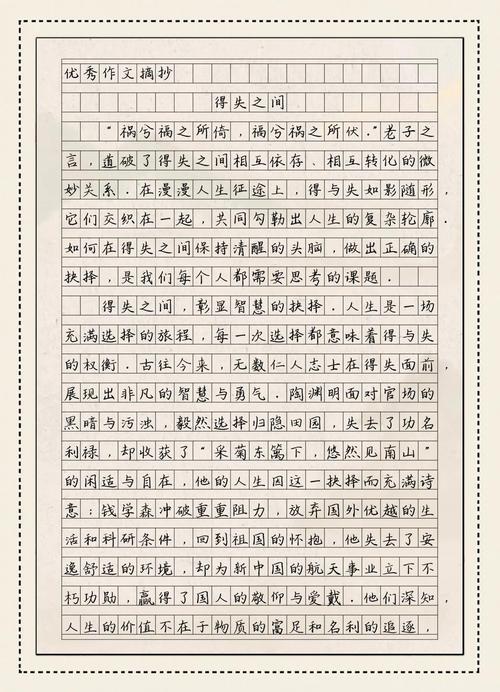 优秀作文摘抄
得失之间
“祸兮福之所倚，福兮祸之所伏.”老子之
言，道破了得失之间相互依存、相互转化的微
妙关系.在漫漫人生征途上，得与失如影随形，
它们交织在一起，共同勾勒出人生的复杂轮廓.
如何在得失之间保持清醒的头脑，做出正确的
抉择，是我们每个人都需要思考的课题.
得失之间，彰显智慧的抉择.人生是一场
充满选择的旅程，每一次选择都意味着得与失
的权衡.古往今来，无数仁人志士在得失面前，
展现出非凡的智慧与勇气.陶渊明面对官场的
黑暗与污浊，毅然选择归隐田园，失去了功名
利禄，却收获了“采菊东篱下，悠然见南山”
的闲适与自在，他的人生因这一抉择而充满诗
意；钱学森冲破重重阻力，放弃国外优越的生
活和科研条件，回到祖国的怀抱，他失去了安
逸舒适的环境，却为新中国的航天事业立下不
朽功勋，赢得了国人的敬仰与爱戴.他们深知，
人生的价值不在于物质的富足和名利的追逐，